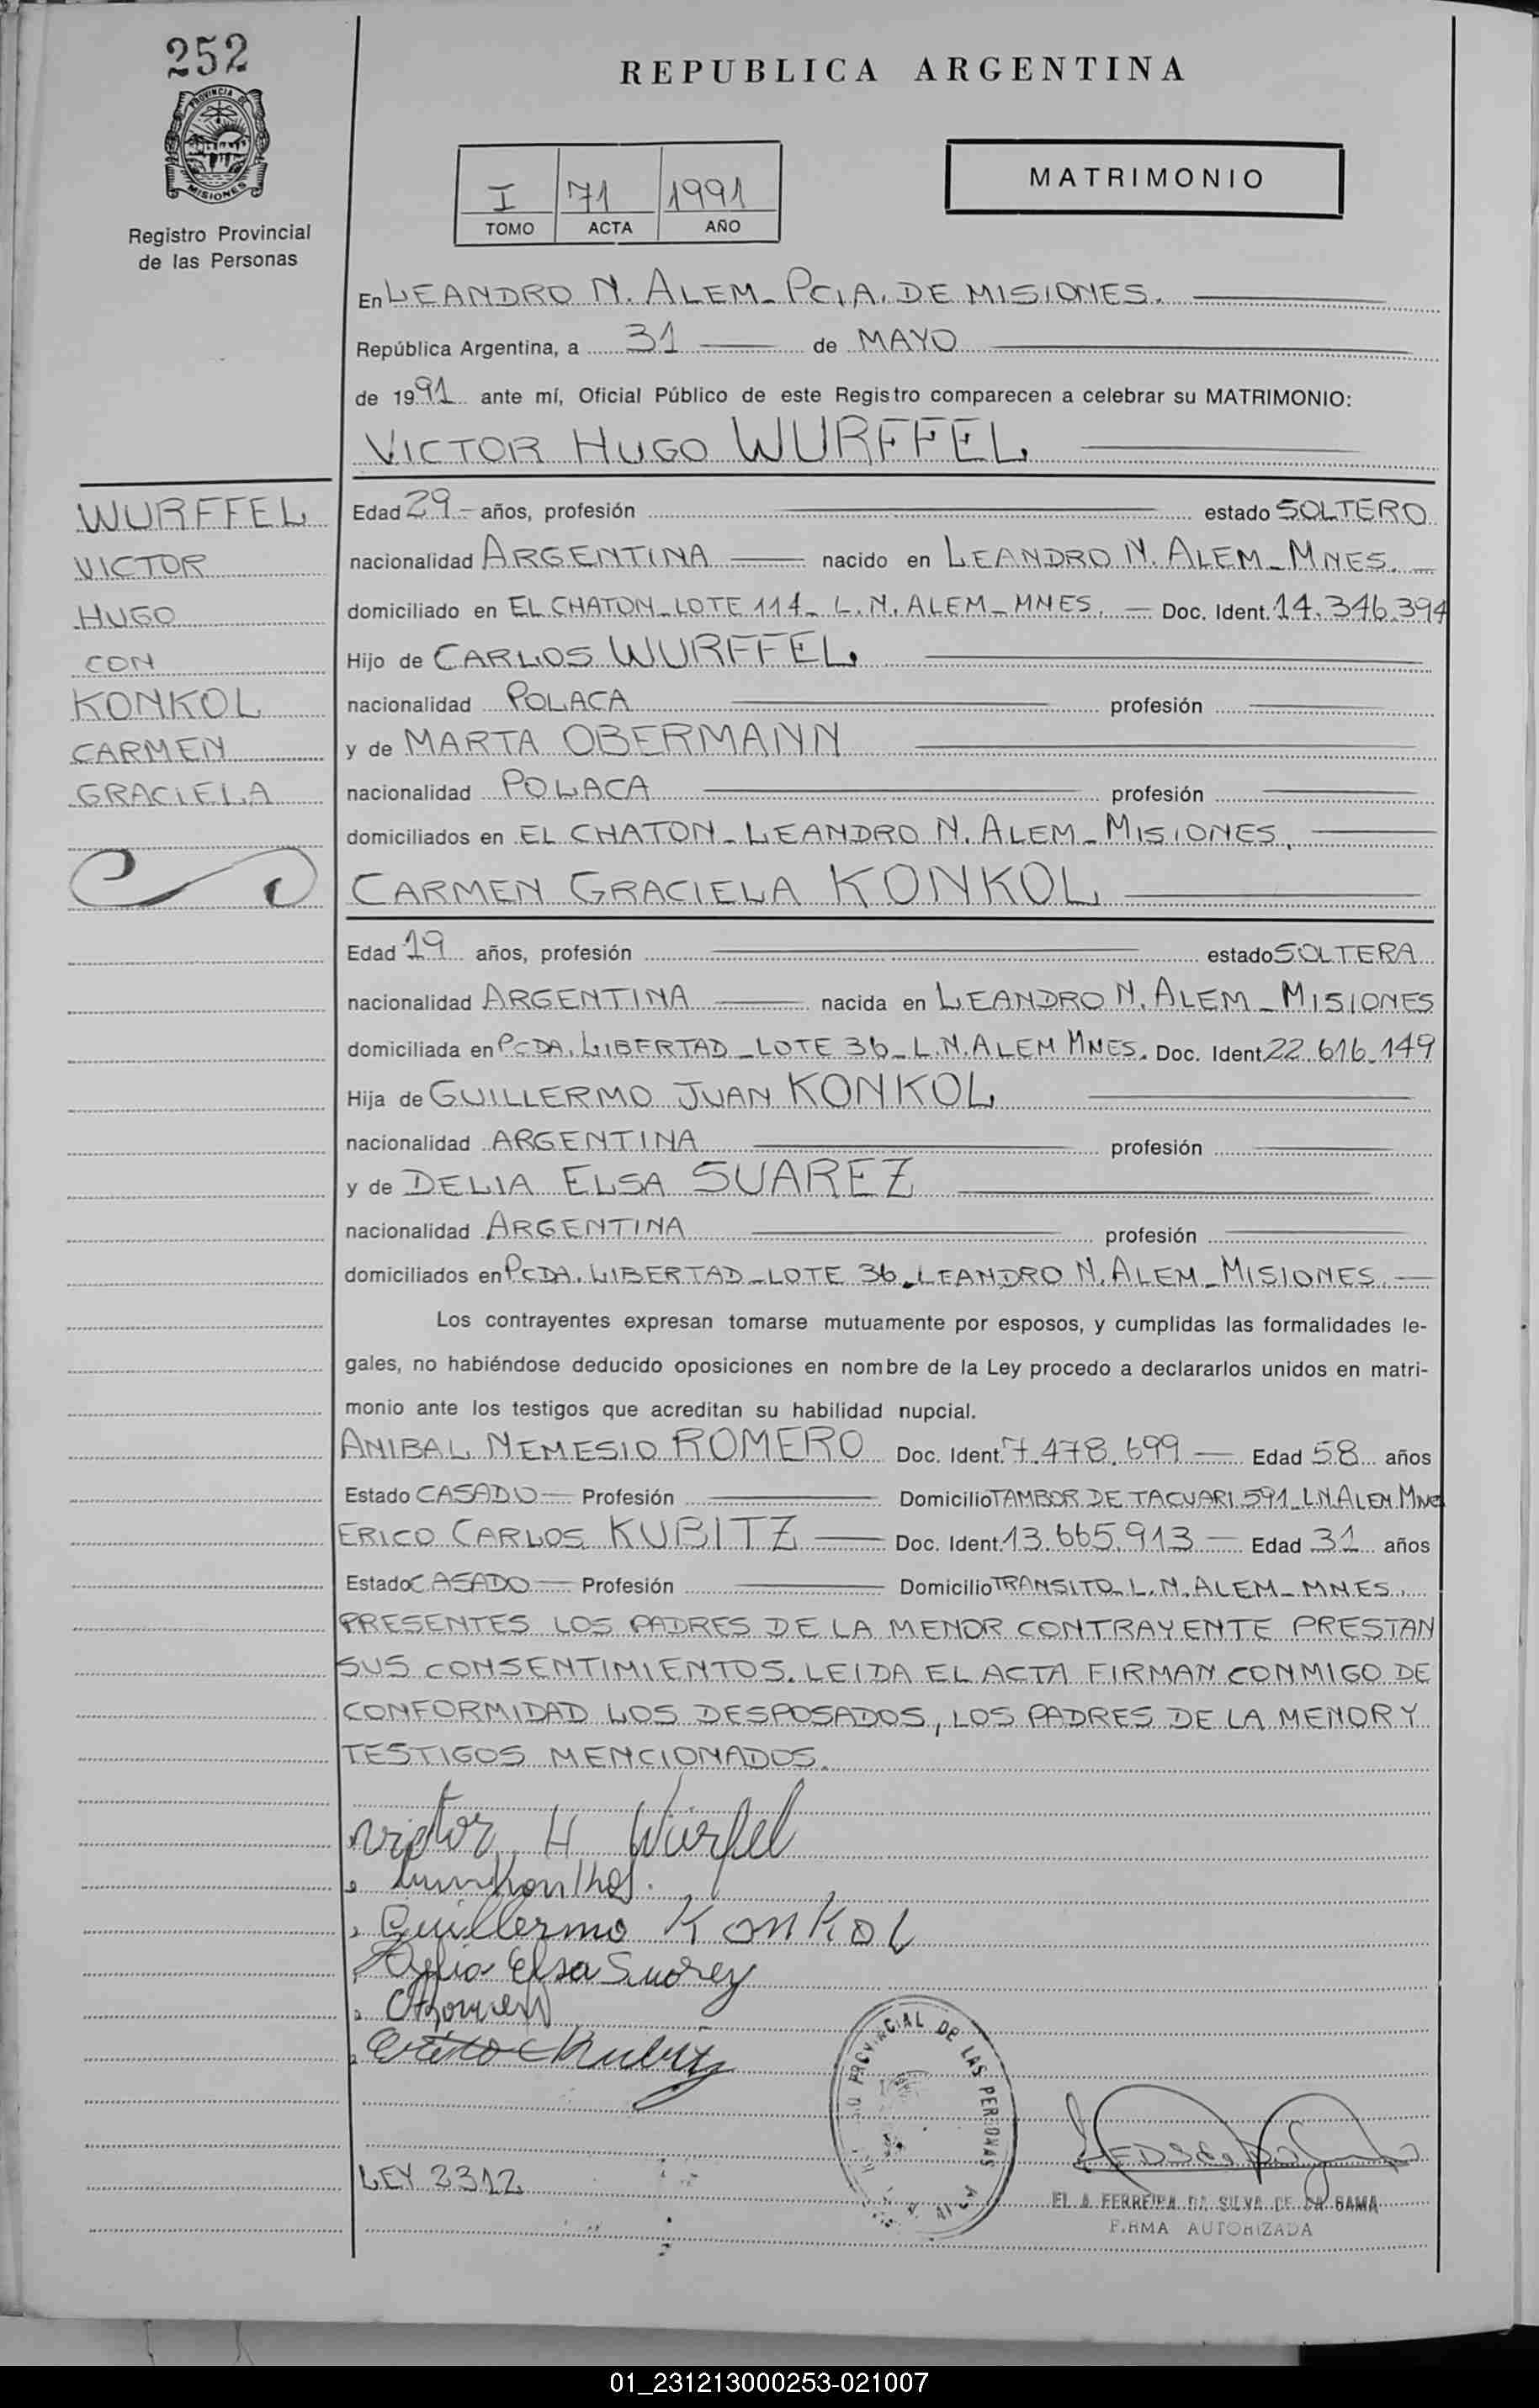 252
REPUBLICA ARGENTINA
PROVINCIA DE
MISIONES
Registro Provincial
de las Personas
I 71 1991
TOMO ACTA AÑO
MATRIMONIO
En LEANDRO N. ALEM - PCIA. DE MISIONES.
República Argentina, a 31 de MAYO
de 1991 ante mí, Oficial Público de este Registro comparecen a celebrar su MATRIMONIO:
VICTOR HUGO WURFFEL
WURFFEL
VICTOR
HUGO
CON
KONKOL
CARMEN
GRACIELA
Edad 29 - años, profesión estado SOLTERO
nacionalidad ARGENTINA nacido en LEANDRO N. ALEM - MNES.
domiciliado en EL CHATON - LOTE 114 - L.N. ALEM - MNES. Doc. Ident. 14.346.394
Hijo de CARLOS WURFFEL.
nacionalidad POLACA profesión
y de MARTA OBERMANN
nacionalidad POLACA profesión
domiciliados en EL CHATON - LEANDRO N. ALEM - MISIONES.
CARMEN GRACIELA KONKOL
Edad 19 años, profesión estado SOLTERA
nacionalidad ARGENTINA nacida en LEANDRO N. ALEM - MISIONES
domiciliada en PCDA. LIBERTAD - LOTE 36 - L.N. ALEM MNES. Doc. Ident. 22.616.149
Hija de GUILLERMO JUAN KONKOL
nacionalidad ARGENTINA profesión
y de DELIA ELSA SUAREZ
nacionalidad ARGENTINA profesión
domiciliados en PCDA. LIBERTAD - LOTE 36 - LEANDRO N. ALEM - MISIONES.
Los contrayentes expresan tomarse mutuamente por esposos, y cumplidas las formalidades le-
gales, no habiéndose deducido oposiciones en nombre de la Ley procedo a declararlos unidos en matri-
monio ante los testigos que acreditan su habilidad nupcial.
ANIBAL NEMESIO ROMERO Doc. Ident. 7.478.699 Edad 58 años
Estado CASADO Profesión Domicilio TAMBOR DE TACUARI 591 - L.N. ALEM MNES
ERICO CARLOS KUBITZ Doc. Ident. 13.665.913 Edad 31 años
Estado CASADO Profesión Domicilio TRANSITO - L.N. ALEM - MNES.
PRESENTES LOS PADRES DE LA MENOR CONTRAYENTE PRESTAN
SUS CONSENTIMIENTOS. LEIDA EL ACTA FIRMAN CONMIGO DE
CONFORMIDAD LOS DESPOSADOS, LOS PADRES DE LA MENOR Y
TESTIGOS MENCIONADOS.
Victor H Würfel
Konkol.
Guillermo KONKOL
Delia Elsa Suarez
Erico C Kubitz
PROVINCIAL DE LAS PERSONAS
LEY 3312
FERREIRA DA SILVA DE DA GAMA
FIRMA AUTORIZADA
01_231213000253-021007